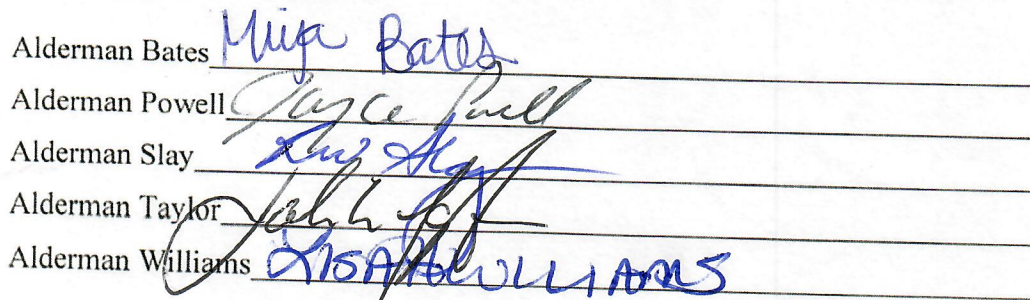 Alderman Bates Miya Bates
Alderman Powell Joyce Powell
Alderman Slay
Alderman Taylor
Alderman Williams LISA WILLIAMS